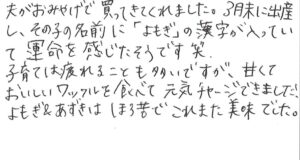 夫がおみやげで買ってきてくれました。3月末に出産
し、その子の名前に「よもぎ」の漢字が入ってい
て運命を感じたそうです笑
子育ては疲れることも多いですが、甘くて
おいしいワッフルを食べて元気チャージできました。
よもぎ&あずきはほろ苦でこれまた美味でした。